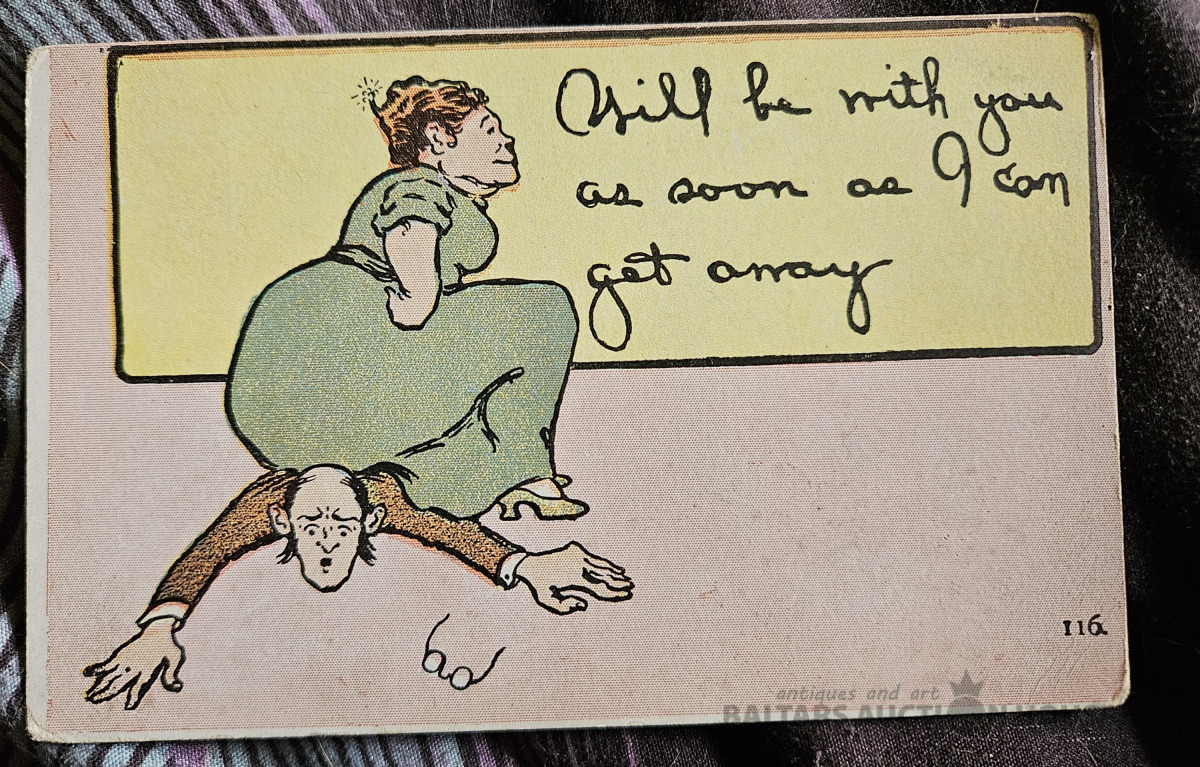 Will be with you
as soon as I can
get away
116
antiques and art
BALTARS AUCTION HOUSE